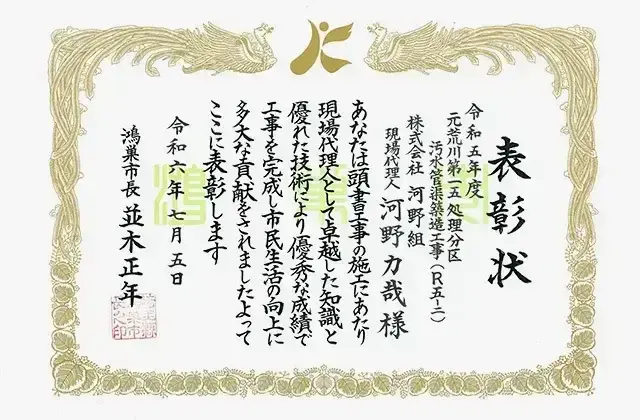 表彰状
令和五年度
元荒川第一五処理分区
汚水管渠築造工事（R五-二）
株式会社 河野組
現場代理人 河野力哉様
あなたは頭書工事の施工にあたり
現場代理人として卓越した知識と
優れた技術により優秀な成績で
工事を完成し市民生活の向上に
多大な貢献をされましたよって
ここに表彰します
令和六年七月五日
鴻巣市長 並木正年